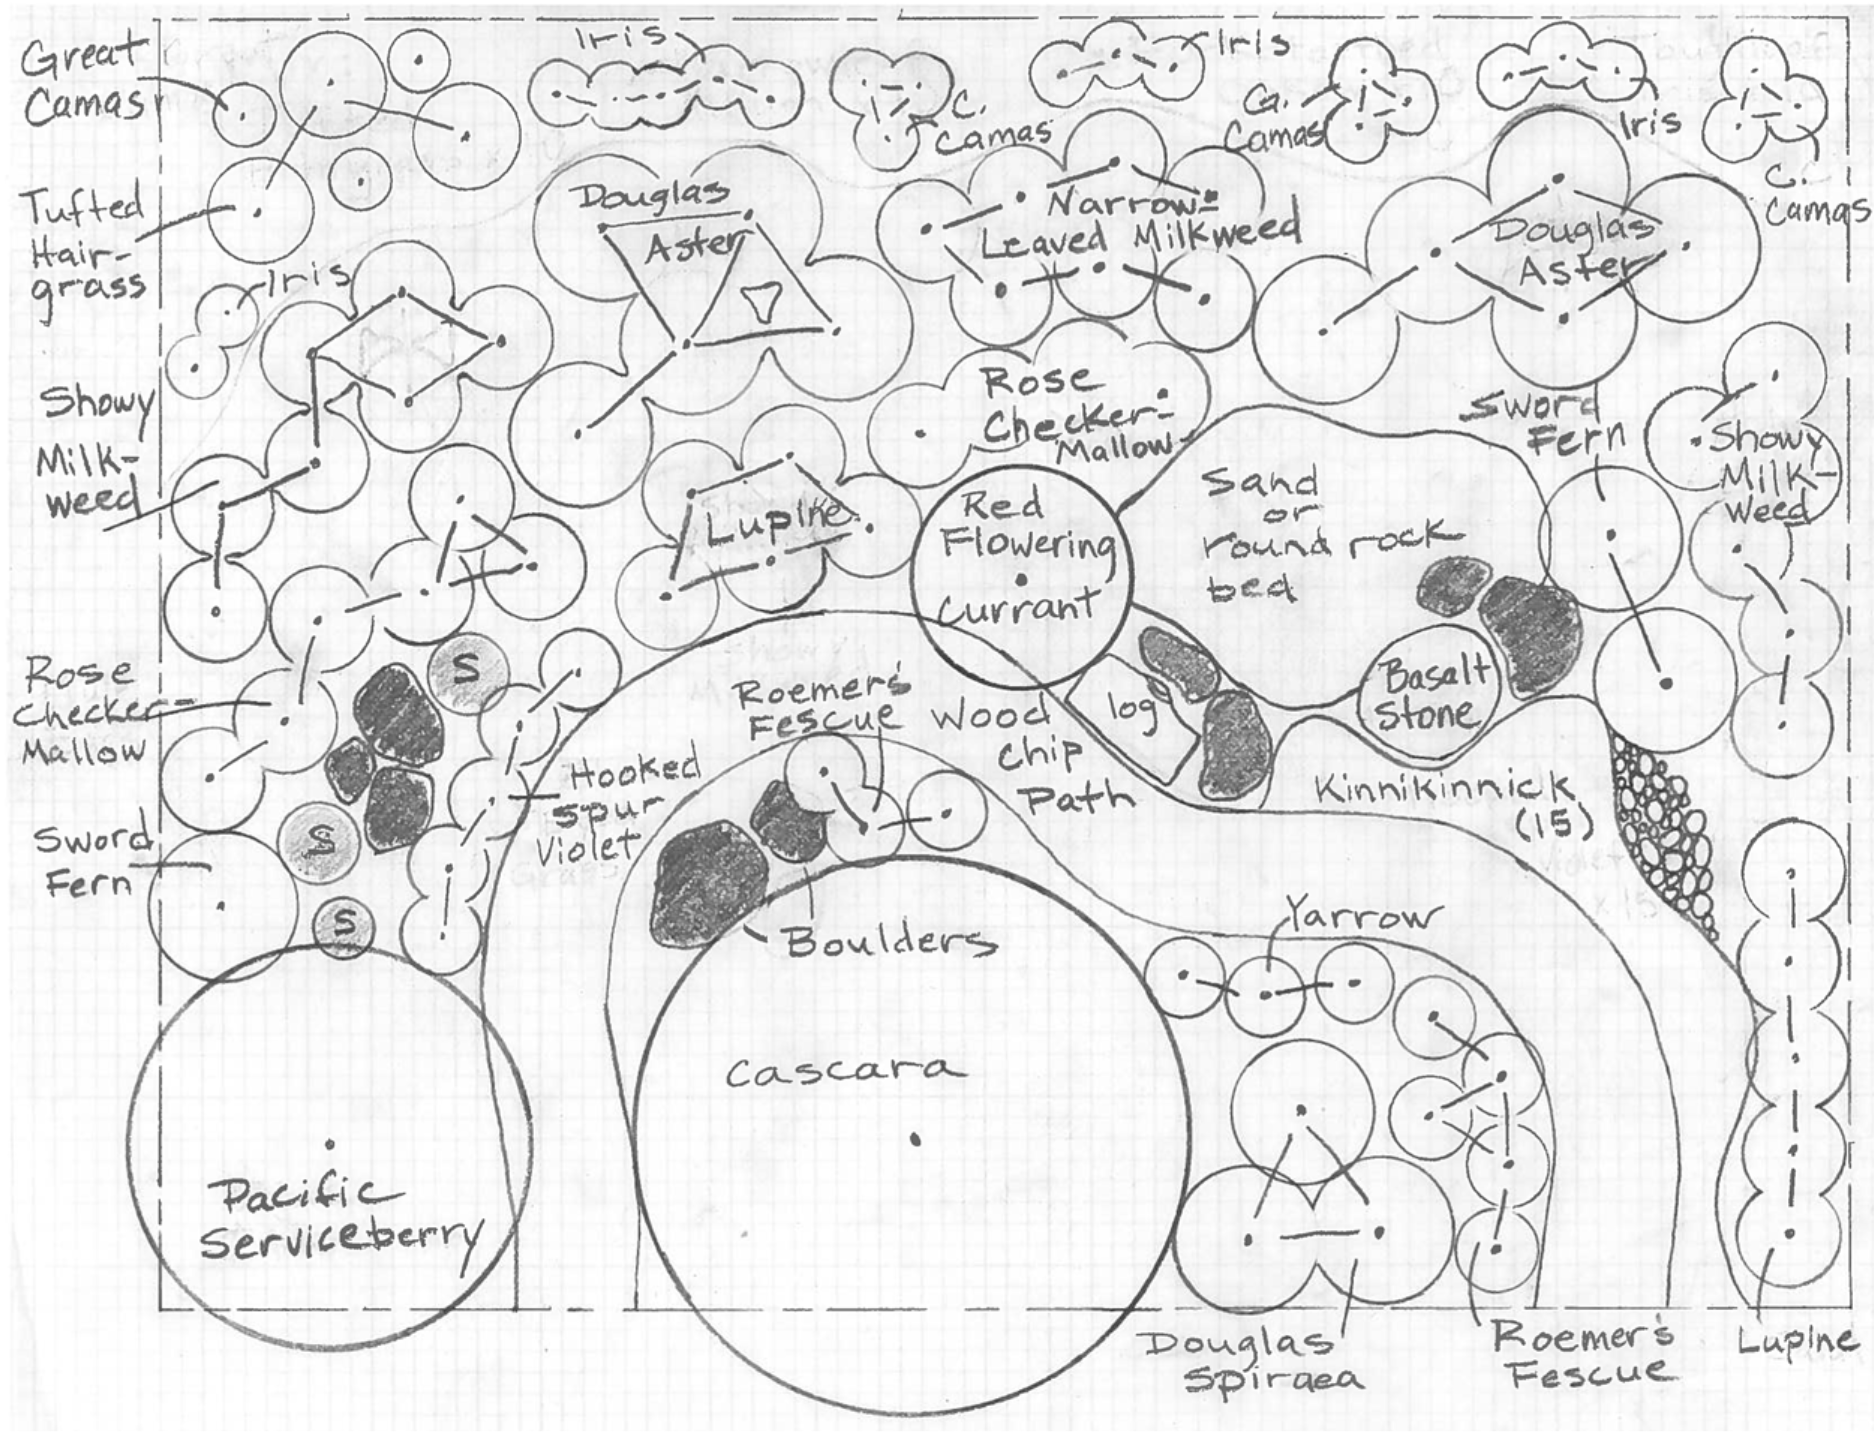 Great
Camas
Iris
C.
Camas
Iris
G.
Camas
Iris
C.
Camas
Tufted
Hair-
grass
Iris
Douglas
Aster
Narrow-
Leaved Milkweed
Douglas
Aster
Showy
Milk-
weed
Rose
Checker-
Mallow
Sword
Fern
Showy
Milk-
weed
Lupine
Red
Flowering
Currant
Sand
or
round rock
bed
Rose
Checker-
Mallow
S
Hooked
Spur
Violet
Roemer's
Fescue
Wood
Chip
Path
log
Basalt
Stone
Kinnikinnick
(15)
Sword
Fern
S
S
Boulders
Yarrow
Cascara
Pacific
Serviceberry
Douglas
Spiraea
Roemer's
Fescue
Lupine